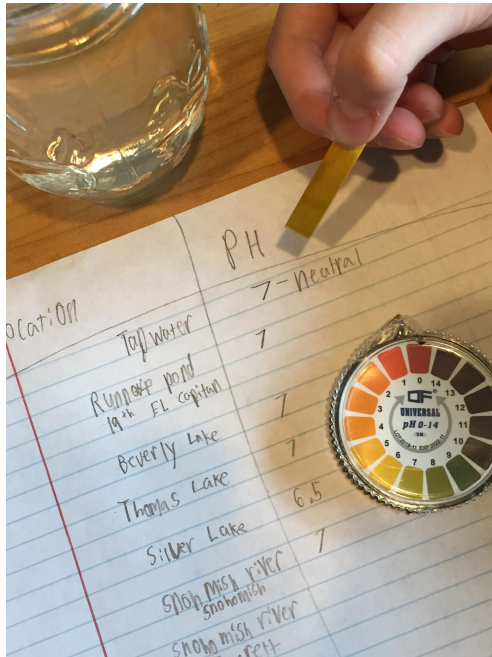 PH
ocation
Tap water 7 - Neutral
Runoff pond 7
19th EL Capitan
Beverly Lake 7
Thomas Lake 7
Silver Lake 6.5
snohomish river 7
snohomish
snohomish river
rett
0 14
1 13
2 12
3 11
4 10
5 9
6 7 8
UNIVERSAL
pH 0-14